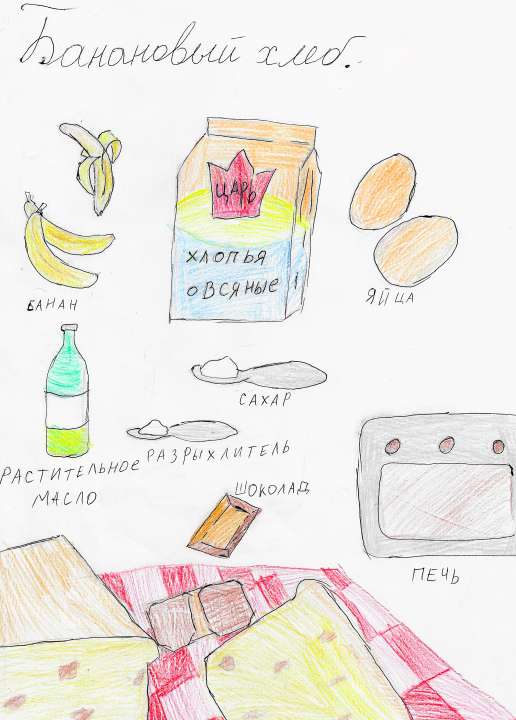 Банановый хлеб.
ЦАРЬ
ХЛОПЬЯ
ОВСЯНЫЕ
БАНАН
ЯЙЦА
САХАР
РАЗРЫХЛИТЕЛЬ
РАСТИТЕЛЬНОЕ
МАСЛО
ШОКОЛАД
ПЕЧЬ